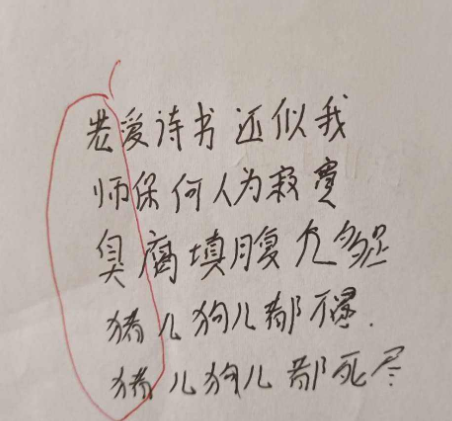 老爱诗书还似我
师保何人为寂寞
臭腐填腹
猪儿狗儿都不
猪儿狗儿都死尽